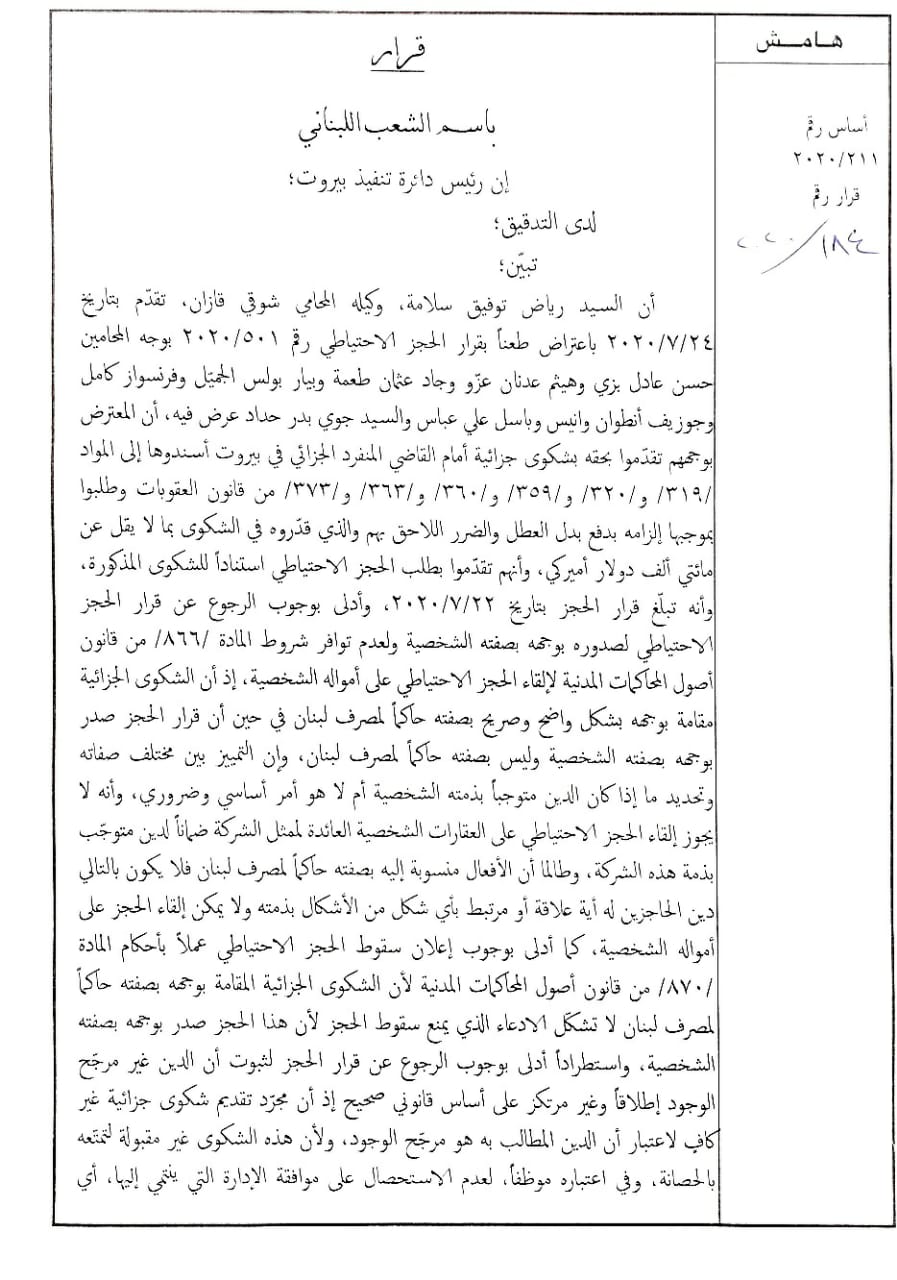 هامش
أساس رقم
٢٠٢٠/٢١١
قرار رقم
٢٠٢٠/١٨٤
قرار
باسم الشعب اللبناني
إن رئيس دائرة تنفيذ بيروت؛
لدى التدقيق؛
تبيّن؛
أن السيد رياض توفيق سلامة، وكيله المحامي شوقي قازان، تقدّم بتاريخ
٢٠٢٠/٧/٢٤ باعتراض طعناً بقرار الحجز الاحتياطي رقم ٢٠٢٠/٥٠١ بوجه المحامين
حسن عادل بزي وهيثم عدنان عزّو وجاد عثمان طعمة وبيار بولس الجميّل وفرنسواز كامل
وجوزيف أنطوان وانيس وباسل علي عباس والسيد جوي بدر حداد عرض فيه، أن المعترض
بوجههم تقدّموا بحقه بشكوى جزائية أمام القاضي المنفرد الجزائي في بيروت أسندوها إلى المواد
/٣١٩/ و/٣٢٠/ و/٣٥٩/ و/٣٦٠/ و/٣٦٣/ و/٣٧٣/ من قانون العقوبات وطلبوا
بموجبها إلزامه بدفع بدل العطل والضرر اللاحق بهم والذي قدّروه في الشكوى بما لا يقل عن
مائتي ألف دولار أميركي، وأنهم تقدّموا بطلب الحجز الاحتياطي استناداً للشكوى المذكورة،
وأنه تبلّغ قرار الحجز بتاريخ ٢٠٢٠/٧/٢٢، وأدلى بوجوب الرجوع عن قرار الحجز
الاحتياطي لصدوره بوجهه بصفته الشخصية ولعدم توافر شروط المادة /٨٦٦/ من قانون
أصول المحاكمات المدنية لإلقاء الحجز الاحتياطي على أمواله الشخصية، إذ أن الشكوى الجزائية
مقامة بوجهه بشكل واضح وصريح بصفته حاكماً لمصرف لبنان في حين أن قرار الحجز صدر
بوجهه بصفته الشخصية وليس بصفته حاكماً لمصرف لبنان، وإن التمييز بين مختلف صفاته
وتحديد ما إذا كان الدين متوجباً بذمته الشخصية أم لا هو أمر أساسي وضروري، وأنه لا
يجوز إلقاء الحجز الاحتياطي على العقارات الشخصية العائدة لممثل الشركة ضماناً لدين متوجّب
بذمة هذه الشركة، وطالما أن الأفعال منسوبة إليه بصفته حاكماً لمصرف لبنان فلا يكون بالتالي
دين الحاجزين له أية علاقة أو مرتبط بأي شكل من الأشكال بذمته ولا يمكن إلقاء الحجز على
أمواله الشخصية، كما أدلى بوجوب إعلان سقوط الحجز الاحتياطي عملاً بأحكام المادة
/٨٧٠/ من قانون أصول المحاكمات المدنية لأن الشكوى الجزائية المقامة بوجهه بصفته حاكماً
لمصرف لبنان لا تشكّل الادعاء الذي يمنع سقوط الحجز لأن هذا الحجز صدر بوجهه بصفته
الشخصية، واستطراداً أدلى بوجوب الرجوع عن قرار الحجز لثبوت أن الدين غير مرجّح
الوجود إطلاقاً وغير مرتكز على أساس قانوني صحيح إذ أن مجرّد تقديم شكوى جزائية غير
كافٍ لاعتبار أن الدين المطالب به هو مرجّح الوجود، ولأن هذه الشكوى غير مقبولة لتمتّعه
بالحصانة، وفي اعتباره موظفاً، لعدم الاستحصال على موافقة الإدارة التي ينتمي إليها، أي